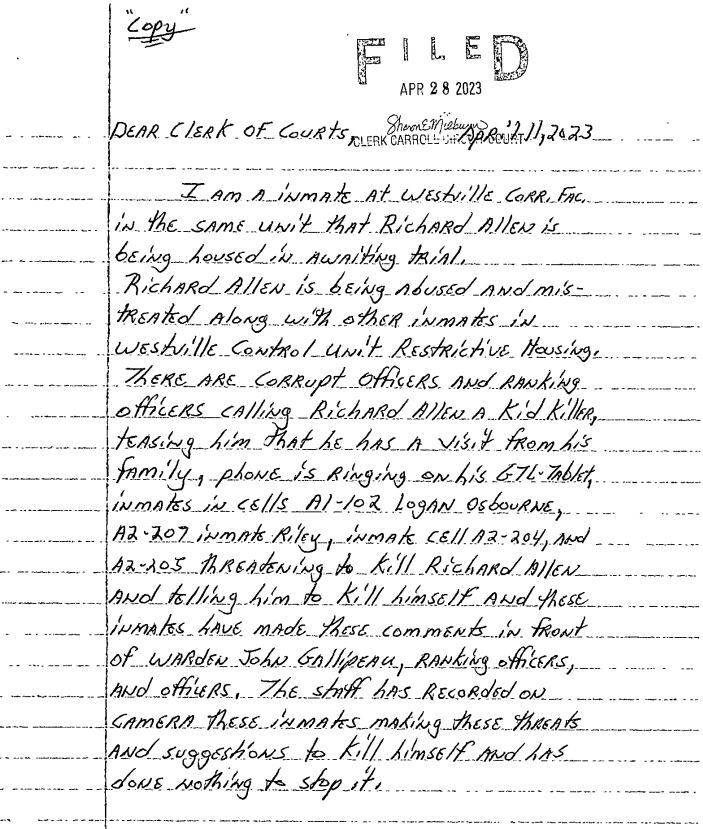 "Copy"
FILED
APR 28 2023
DEAR CLERK OF COURTS, APRil 11, 2023
CLERK CARROLL COURT
I AM A iNMATE AT WESTVillE CORR. FAC.
iN thE SAME UNIT thAT RichARD AllEN is
bEiNg housED iN AwAitiNg tRiAl.
RichARD AllEN is bEiNg AbusED AND mis-
tREATED AloNg with othER iNMATES iN
WESTVillE CoNtRol UNit REStRictivE HousiNg.
ThERE ARE CORRUPt OfficERS AND RANKiNg
officERS cAlliNg RichARD AllEN A Kid KillER,
tEASiNg him thAt hE hAS A visit fRom his
fAmily, phoNE is RiNgiNg oN his GTL-TAblEt,
iNMATES iN CElls A1-102 LogAN OsbouRNE,
A2-207 iNMATE RilEy, iNMATE CEll A2-204, AND
A2-205 thREAtENiNg to Kill RichARD AllEN
AND tElliNg him to Kill himsElf AND thESE
iNMATES hAVE mADE thESE commENts iN fRoNt
of WARDEN JohN GAllipEAu, RANKiNg officERS,
AND officERS. ThE stAff hAS RECoRDED oN
CAMERA thESE iNMATES mAKiNg thESE thREAts
AND suggEstioNs to Kill himsElf AND hAS
doNE NothiNg to stop it.